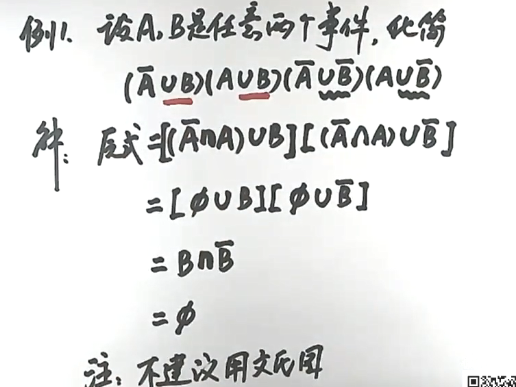 例1. 设A,B是任意两个事件,化简
(A̅∪B)(A∪B)(A̅∪B̅)(A∪B̅)
解: 原式=[(A̅∩A)∪B][(A̅∩A)∪B̅]
=[ϕ∪B][ϕ∪B̅]
=B∩B̅
=ϕ
注: 不建议用文氏图